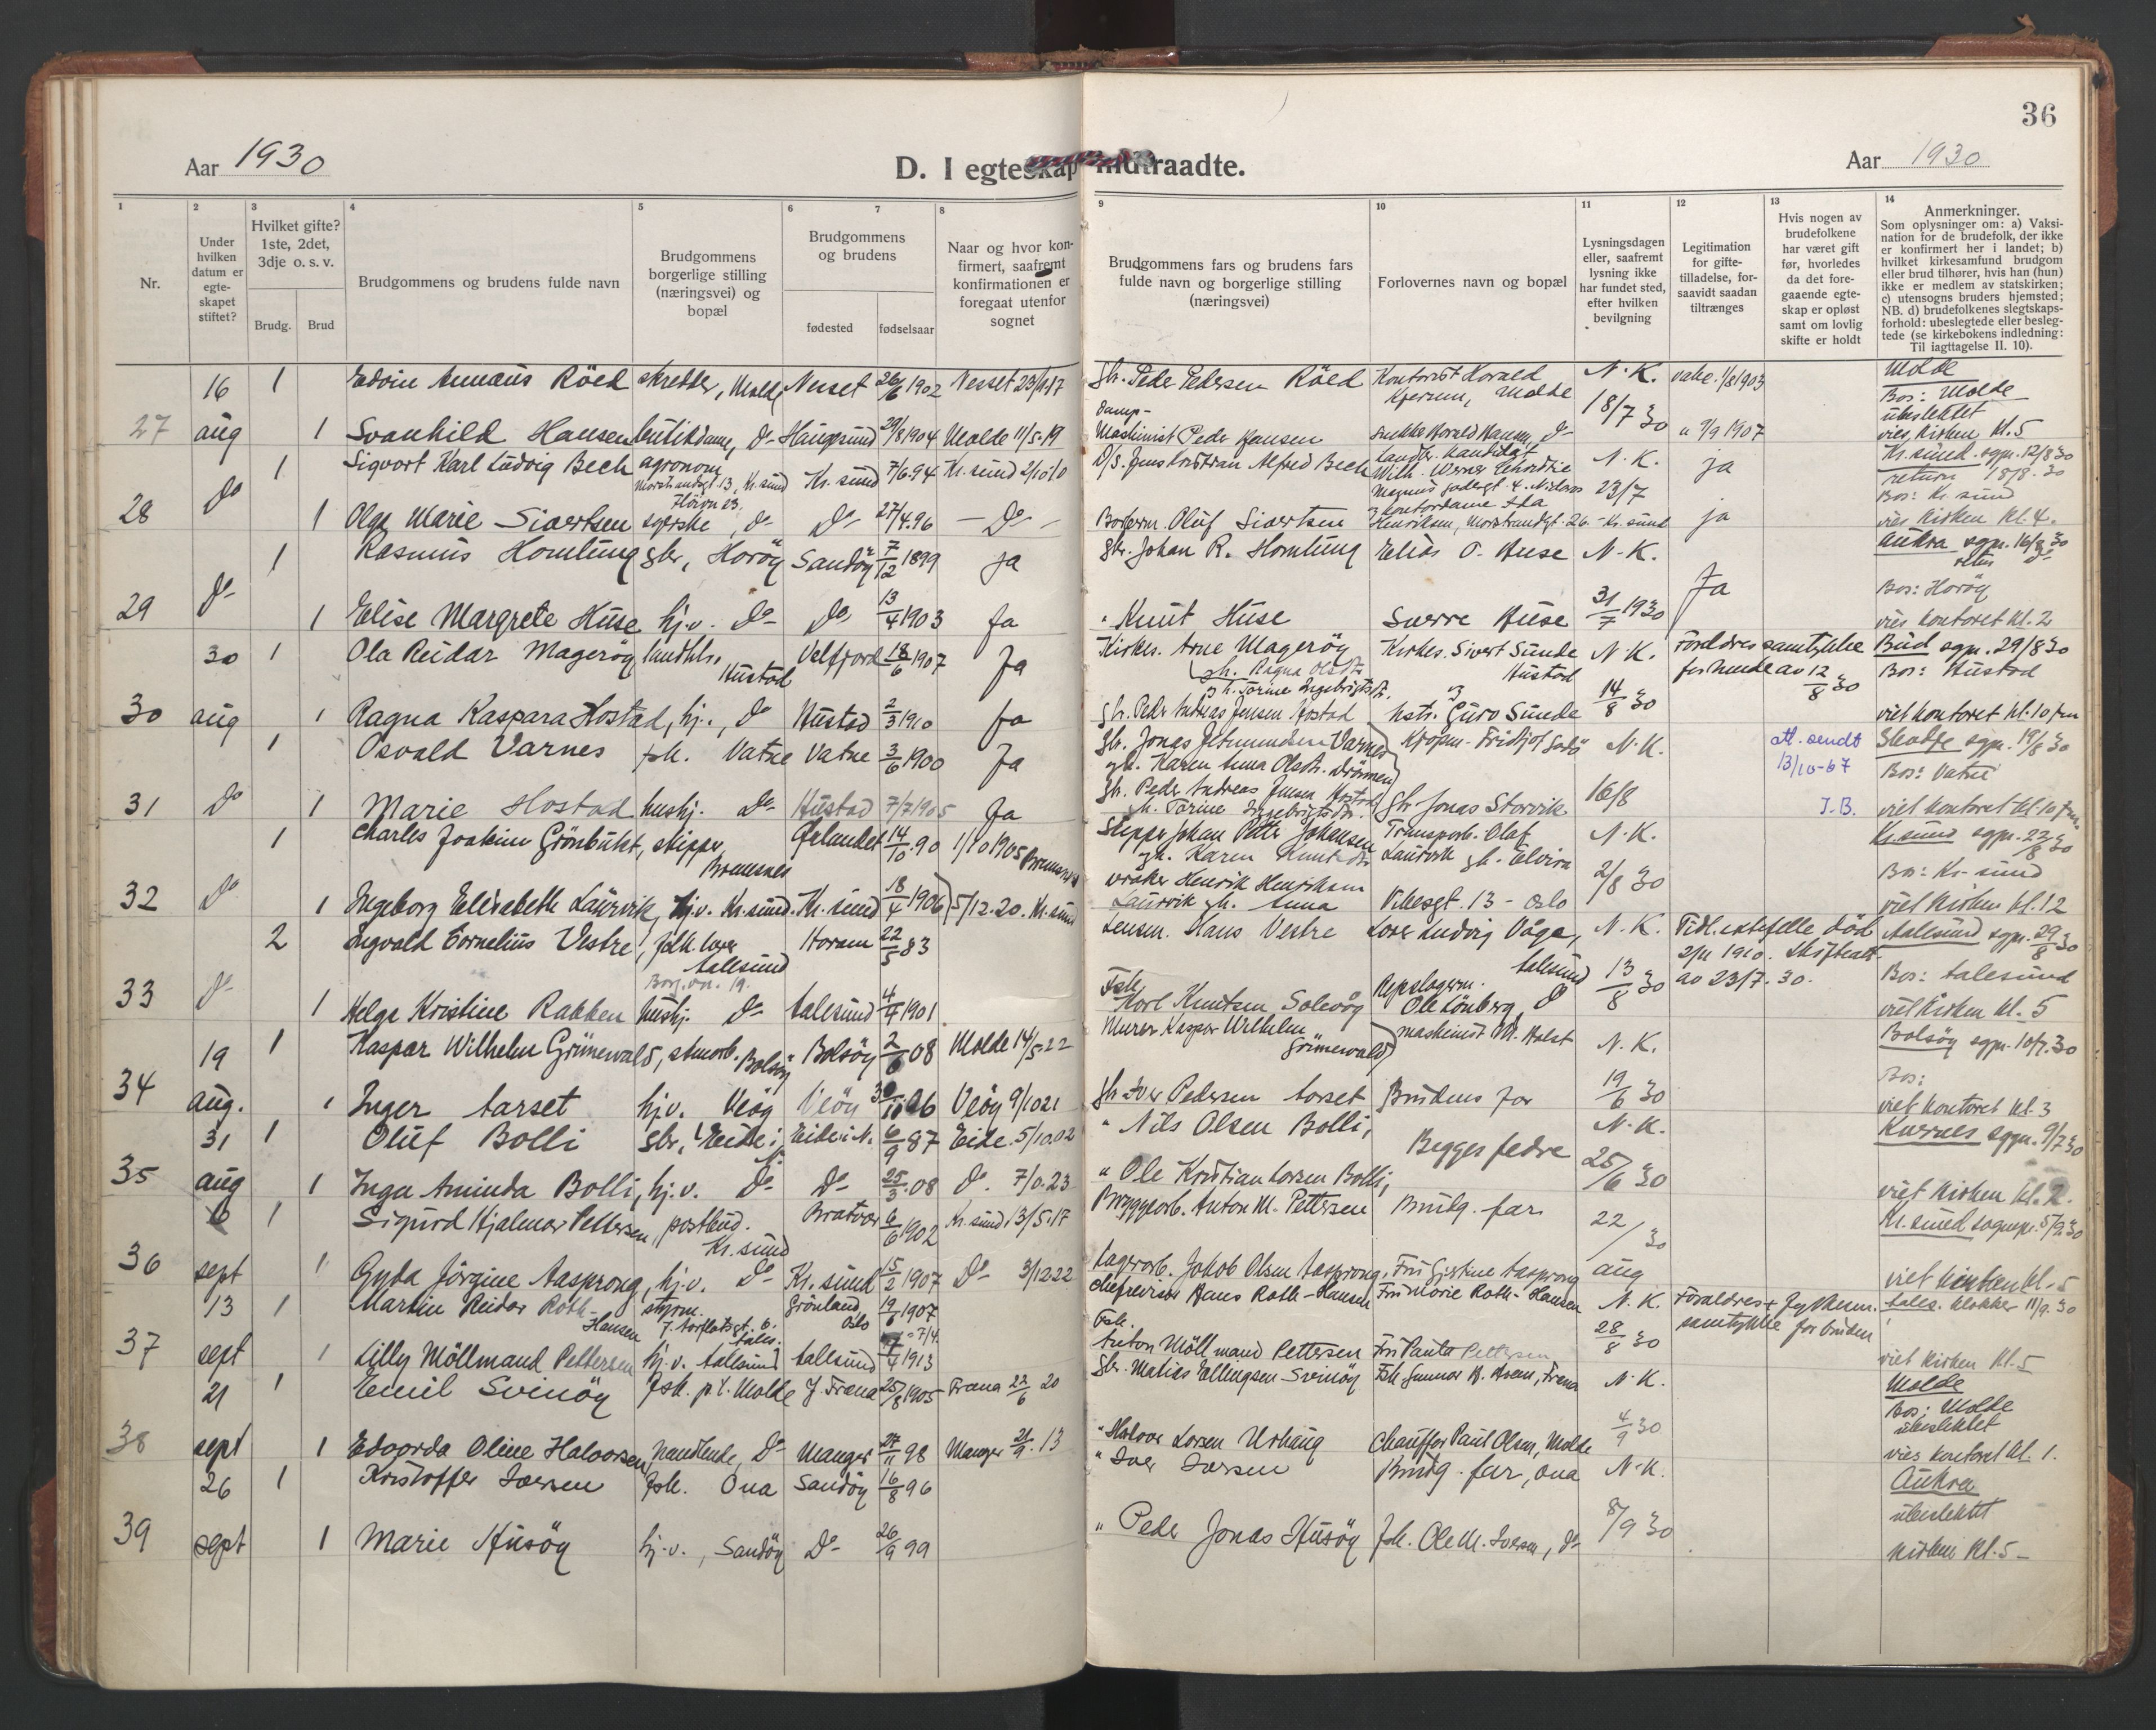 36
Aar 1930
D. I egteskap indtraadte.
Aar 1930
1
Nr.
2
Under hvilken datum er egte- skapet stiftet?
3
Hvilket gifte? 1ste, 2det, 3dje o. s. v.
Brudg.
Brud
4
Brudgommens og brudens fulde navn
5
Brudgommens borgerlige stilling (næringsvei) og bopæl
6
7
Brudgommens og brudens
fødested
fødselsaar
8
Naar og hvor kon- firmert, saafremt konfirmationen er foregaat utenfor sognet
9
Brudgommens fars og brudens fars fulde navn og borgerlige stilling (næringsvei)
10
Forlovernes navn og bopæl
11
Lysningsdagen eller, saafremt lysning ikke har fundet sted, efter hvilken bevilgning
12
Legitimation for gifte- tilladelse, for- saavidt saadan tiltrænges
13
Hvis nogen av brudefolkene har været gift før, hvorledes da det fore- gaaende egte- skap er opløst samt om lovlig skifte er holdt
14
Anmerkninger.
Som oplysninger om: a) Vaksi- nation for de brudefolk, der ikke er konfirmert her i landet; b) hvilket kirkesamfund brudgom eller brud tilhører, hvis han (hun) ikke er medlem av statskirken; c) utensogns bruders hjemsted; NB. d) brudefolkenes slegtskaps- forhold: ubeslegtede eller besleg- tede (se kirkebokens indledning: Til iagttagelse II. 10).
16 1 Edvin Annanis Röed skredder, Molde Nesset 26/6 1902 Nesset 23/9 17 gb. Peder Pedersen Röed Kontorist Harald Kjersem, Molde N.K. vakc. 1/8 1903 Molde
Bos: Molde
ubeslektet
27 aug 1 Svanhild Hansen butikdame, do Haugesund 29/8 1904 Molde 11/5-19 Damp-
Maskinist Peder Hansen Harald Hansen, do 18/7 30 " 9/9 1907 vies kirken kl. 5
1 Sigvart Karl Ludvig Bech agronom Kr. sund Kr. sund 7/6.94 Kr. sund 2/10 10 Alfred Bech Landbr. kandidat N.K. ja Kr. sund. sgpr. 12/8 30
retur 18/8. 30
Bos: Kr. sund
28 do 1 Olga Marie Sivertsen syerske, do do 27/4.96 — Do — Oluf Sivertsen Henriksen, 26 - Kr. sund 23/7 ja vies kirken kl. 4.
1 Rasmus Homlung gbr., Horöy Sandöy 7/12 1899 ja gbr. Johan R. Homlung Elias O. Huse N.K. Ja Aukra sgpr. 16/8 30
Bos: Horöy
29 do 1 Elise Margrete Huse hj.v. do do 13/4 1903 ja " Knut Huse Sverre Huse 31/7 1930 vies kontoret kl. 2
30 1 Ola Reidar Mageröy Hustad Velfjord 18/6 1907 Ja Kirkes. Arne Mageröy Kirkes. Sivert Sunde Hustad N.K. Foreldres samtykke for hende av 12/8 30 Bud sgpr. 29/8 30
Bos: Hustad
30 aug 1 Ragna Kaspara Hostad, hj., do Hustad 2/3 1910 ja gb. Peder Andreas Jensen Hostad og hstr. Guro Sunde 14/8 30 viet kontoret kl. 10 fm
1 Osvald Varnes fsk. Vatne Vatne 3/6 1900 Ja Kjöpm. Fridtjof N.K. At. sendt 13/10-67 Skodje sgpr. 19/8 30
Bos: Vatne
31 do 1 Marie Hostad hushj. do Hustad 7/7 1905 Ja gb. Peder Andreas Jensen Hostad gb. Jonas Storvik 16/8 J.B. viet kontoret kl. 10 fm
1 Charles Joakim Grönbukt, skipper, Bremsnes 14/10.90 1/10 1905 Bremsnes Skipper Johan Petter Johansen gh. Karen Transportb. Olaf Laurvik gh. Elvira N.K. Kr. sund sgpr. 22/8 30
Bos: Kr. sund
32 do 1 Ingeborg Elisabeth Laurvik, hj.v. Kr. sund. Kr. sund 18/4 1906 5/12.20. Kr. sund vraker Henrik Henriksen Laurvik gh. Anna Vibesgt. 13 - Oslo 2/8 30 viet kirken kl. 12
2 Ingvald Cornelius Vestre, Aalesund Haram 22/5 83 Lensm. Hans Vestre Ludvig Våge, Aalesund N.K. Tidl. ektefelle död 2/11 1910. Skifteatt. av 23/7. 30. Aalesund sgpr. 29/8 30
Bos: Aalesund
33 do 1 Helga Kristine Rabben hushj. do Aalesund 4/4 1901 Fsk. Karl Knutsen Solevåg Repslagerm. Ole Lönberg, do 13/8 30 viet kirken kl. 5
19 1 Kaspar Wilhelm Grünewald, Bolsöy Bolsöy 2/6 08 Molde 14/5 22 Murer Kaspar Wilhelm Grünewald maskinist M. Holst N.K. Bolsöy sgpr. 10/7. 30
Bos:
34 aug. 1 Inger Aarset hj.v. Veöy Veöy 06 Veöy 9/10 21 gb. Iver Pedersen Aarset Brudens far 19/6 30 viet kontoret kl. 3
31 1 Oluf Bolli gbr., Eide i N. Eide i N. 6/9 87 Eide. 5/10.02 " Nils Olsen Bolli, Begges fedre N.K. Kornes sgpr. 9/7 30
35 aug 1 Inga Aminda Bolli, hj.v. do do 25/3.08 do. 7/10.23 " Ole Kristian Larsen Bolli, 25/6 30 viet kirken kl. 2.
6 1 Sigurd Hjalmar Pettersen, postbud. Kr. sund Bratvær 6/6 1902 Kr. sund 13/5.17 Bryggearb. Anton M. Pettersen Brudg. far 22/30 Kr. sund sognepr. 5/9 30
36 sept 1 Gyda Jörgine Aasprong, hj.v. do Kr. sund 15/2 1907 do 3/12 22 Lagerarb. Jakob Olsen Aasprong. Fru Gjertine Aasprong aug viet kirken kl. 5
13 1 Martin Reidar Roth-Hansen styrm. Aales. Grönland, Oslo 19/6 1907 Hans Roth-Hansen Fru Marie Roth-Hansen N.K. Foreldres + Fylkesm. samtykke for bruden Aales. klokker 11/9. 30
37 sept 1 Lilly Möllmand Pettersen hj.v. Aalesund Aalesund 1913 Fsk. Anton Möllmand Pettersen Fru Paula Pettersen 28/8 30 viet kirken kl. 5
21 1 Emil Svinöy fsk. p.t. Molde Fræna 25/8 1905 Fræna 22/6 20 gbr. Matias Ellingsen Svinöy Fsk Gunnar Fræna N.K. Molde
Bos: Molde
ubeslektet
38 sept 1 Edvarda Oline Halvorsen, handlende, do Manger 27/11 98 Manger 21/9. 13 " Halvor Larsen Urhaug Chauffør Paul Olsen, Molde 4/9 30 vies kontoret kl. 1.
26 1 Kristoffer Iversen fsk. Ona Sandöy 16/8 96 " Iver Iversen Brudg. far, Ona N.K. Aukra
ubeslektet
39 sept 1 Marie Husöy hj.v., Sandöy do 26/9 99 " Peder Jonas Husöy fsk. Ole M. Iversen, do 8/9 30 kirken kl. 5 -